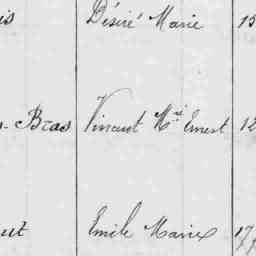 is Désiré Marie 15
Bras Vincent Mie Ernest 12
ut Emile Marie 17